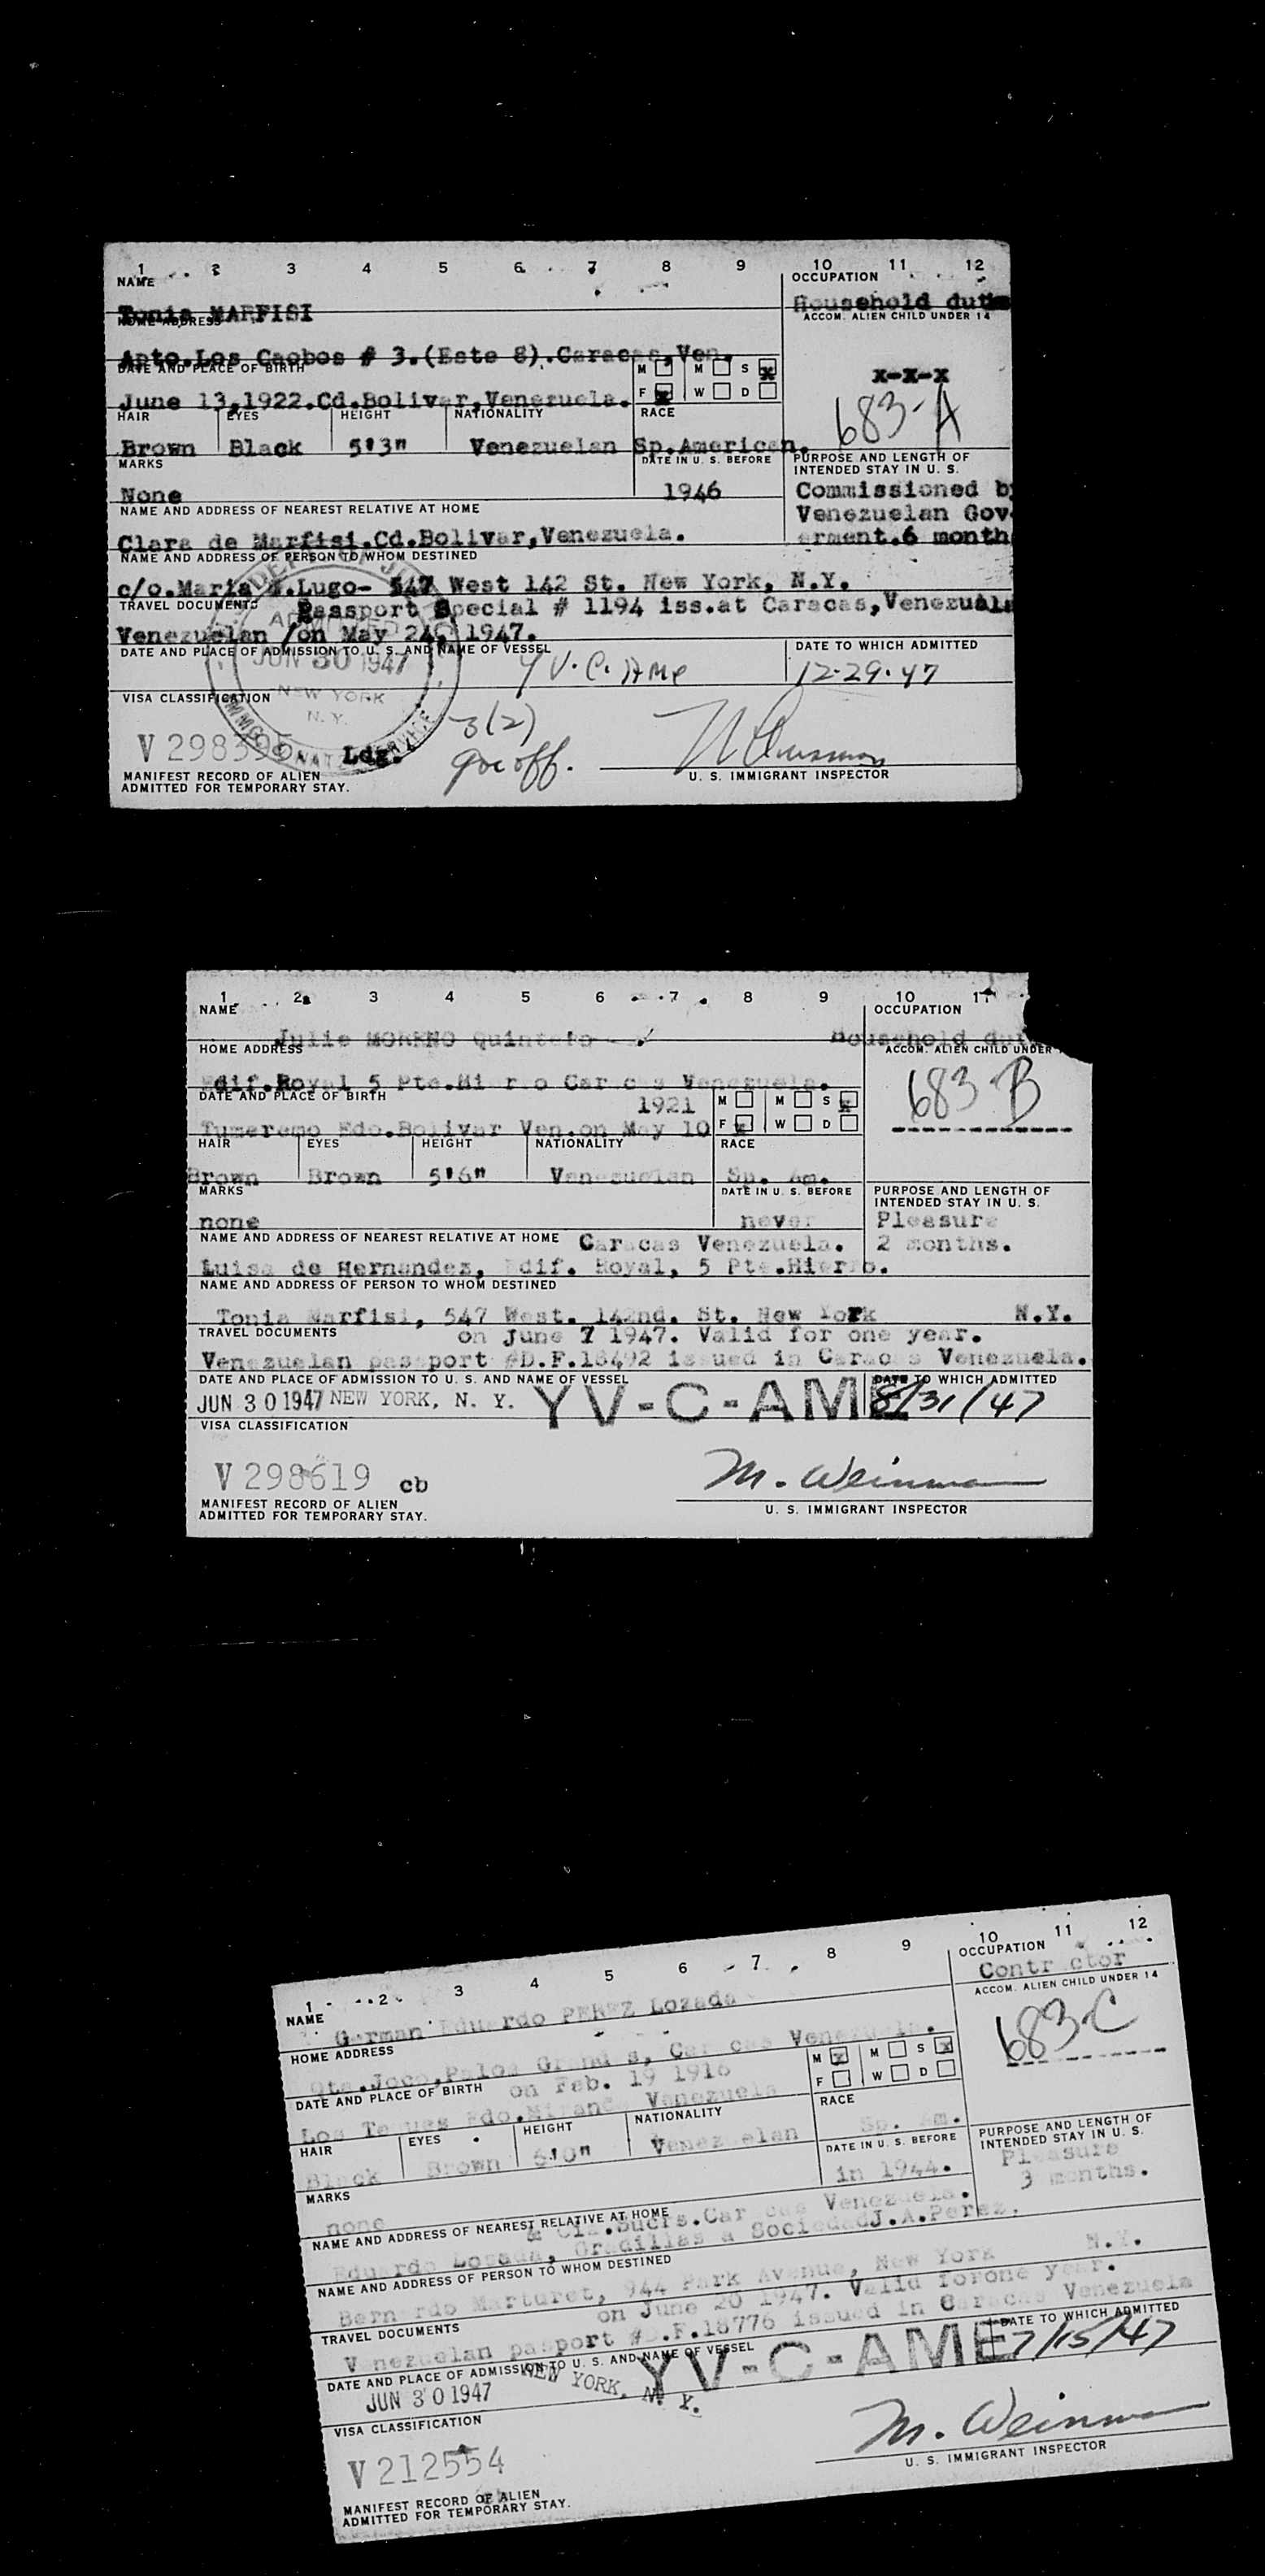 1 2 3 4 5 6 7 8 9 10 11 12
NAME OCCUPATION
Tonia MARFISI Household duties
HOME ADDRESS ACCOM. ALIEN CHILD UNDER 14
Apto.Los Caobos # 3.(Este 8).Caracas,Ven.
DATE AND PLACE OF BIRTH M M S x x-x-x
June 13,1922.Cd.Bolivar,Venezuela. F x W D 683-A
HAIR EYES HEIGHT NATIONALITY RACE
Brown Black 5'3" Venezuelan Sp.American.
MARKS DATE IN U. S. BEFORE PURPOSE AND LENGTH OF
INTENDED STAY IN U. S.
None 1946 Commissioned by
NAME AND ADDRESS OF NEAREST RELATIVE AT HOME Venezuelan Gov-
Clara de Marfisi.Cd.Bolivar,Venezuela. erment.6 month
NAME AND ADDRESS OF PERSON TO WHOM DESTINED
c/o.Maria Lugo- 547 West 142 St. New York, N.Y.
TRAVEL DOCUMENTS Passport Special # 1194 iss.at Caracas,Venezuela
Venezuelan /on May 24, 1947.
DATE AND PLACE OF ADMISSION TO U. S. AND NAME OF VESSEL DATE TO WHICH ADMITTED
ADMITTED JUN 30 1947 YV.C.AME 12-29-47
VISA CLASSIFICATION NEW YORK N.Y. 3(2)
V 298395 Ldg. gov off.
MANIFEST RECORD OF ALIEN U. S. IMMIGRANT INSPECTOR
ADMITTED FOR TEMPORARY STAY.
1 2 3 4 5 6 7 8 9 10 11
NAME OCCUPATION
Julie MORENO Quintero Household
HOME ADDRESS ACCOM. ALIEN CHILD UNDER
Edif.Royal 5 Pte.Hierro Caracas Venezuela.
DATE AND PLACE OF BIRTH 1921 M M S x 683-B
Tumeremo Edo.Bolivar Ven.on May 10 F x W D
HAIR EYES HEIGHT NATIONALITY RACE
Brown Brown 5'6" Venezuelan Sp. Am.
MARKS DATE IN U. S. BEFORE PURPOSE AND LENGTH OF
INTENDED STAY IN U. S.
none never Pleasure
NAME AND ADDRESS OF NEAREST RELATIVE AT HOME Caracas Venezuela. 2 months.
Luisa de Hernandez, Edif. Royal, 5 Pte.Hierro.
NAME AND ADDRESS OF PERSON TO WHOM DESTINED
Tonia Marfisi, 547 West. 142nd. St. New York N.Y.
TRAVEL DOCUMENTS on June 7 1947. Valid for one year.
Venezuelan passport #D.F.18492 issued in Caracas Venezuela.
DATE AND PLACE OF ADMISSION TO U. S. AND NAME OF VESSEL DATE TO WHICH ADMITTED
JUN 30 1947 NEW YORK, N. Y. YV-C-AME 8/31/47
VISA CLASSIFICATION
V 298619 cb M. Weinman
MANIFEST RECORD OF ALIEN U. S. IMMIGRANT INSPECTOR
ADMITTED FOR TEMPORARY STAY.
1 2 3 4 5 6 7 8 9 10 11 12
NAME OCCUPATION
German Eduardo PEREZ Lozada Contractor
HOME ADDRESS ACCOM. ALIEN CHILD UNDER 14
Qta.Joco,Palos Grandes, Caracas Venezuela. 683-C
DATE AND PLACE OF BIRTH on Feb. 19 1916 M x M S x
Los Teques Edo.Miranda Venezuela F W D
HAIR EYES HEIGHT NATIONALITY RACE
Black Brown Venezuelan Sp. Am.
MARKS DATE IN U. S. BEFORE PURPOSE AND LENGTH OF
INTENDED STAY IN U. S.
none in 1944. Pleasure
3 months.
NAME AND ADDRESS OF NEAREST RELATIVE AT HOME & Cia.Sucrs.Caracas Venezuela.
Eduardo Lozada, Gradillas a Sociedad J.A.Perez.
NAME AND ADDRESS OF PERSON TO WHOM DESTINED
Bernardo Marturet, 944 Park Avenue, New York N.Y.
TRAVEL DOCUMENTS on June 20 1947. Valid forone year.
Venezuelan pasport #D.F.18776 issued in Caracas Venezuela
DATE AND PLACE OF ADMISSION TO U. S. AND NAME OF VESSEL DATE TO WHICH ADMITTED
JUN 30 1947 NEW YORK, N. Y. YV-C-AME 7/15/47
VISA CLASSIFICATION
V 212554 M. Weinman
MANIFEST RECORD OF ALIEN U. S. IMMIGRANT INSPECTOR
ADMITTED FOR TEMPORARY STAY.